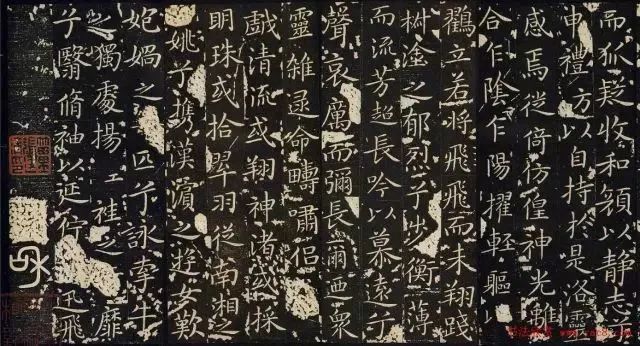 而狐疑收和顏以静志
申禮方以自持於是洛靈
感焉徙倚彷徨神光離
合乍陰乍陽擢輕軀以
鸛立若將飛飛而未翔踐
椒塗之郁烈兮步衡薄
而流芳超長吟以慕遠兮
聲哀厲而彌長爾迺衆
靈雑遝命疇嘯侣
戯清流或翔神渚或採
明珠或拾翠羽從南湘之
姚兮攜漢濵之遊女歎
妃媧之匹兮詠牽牛
之獨處揚袿之靡
兮翳脩袖以延佇迅飛